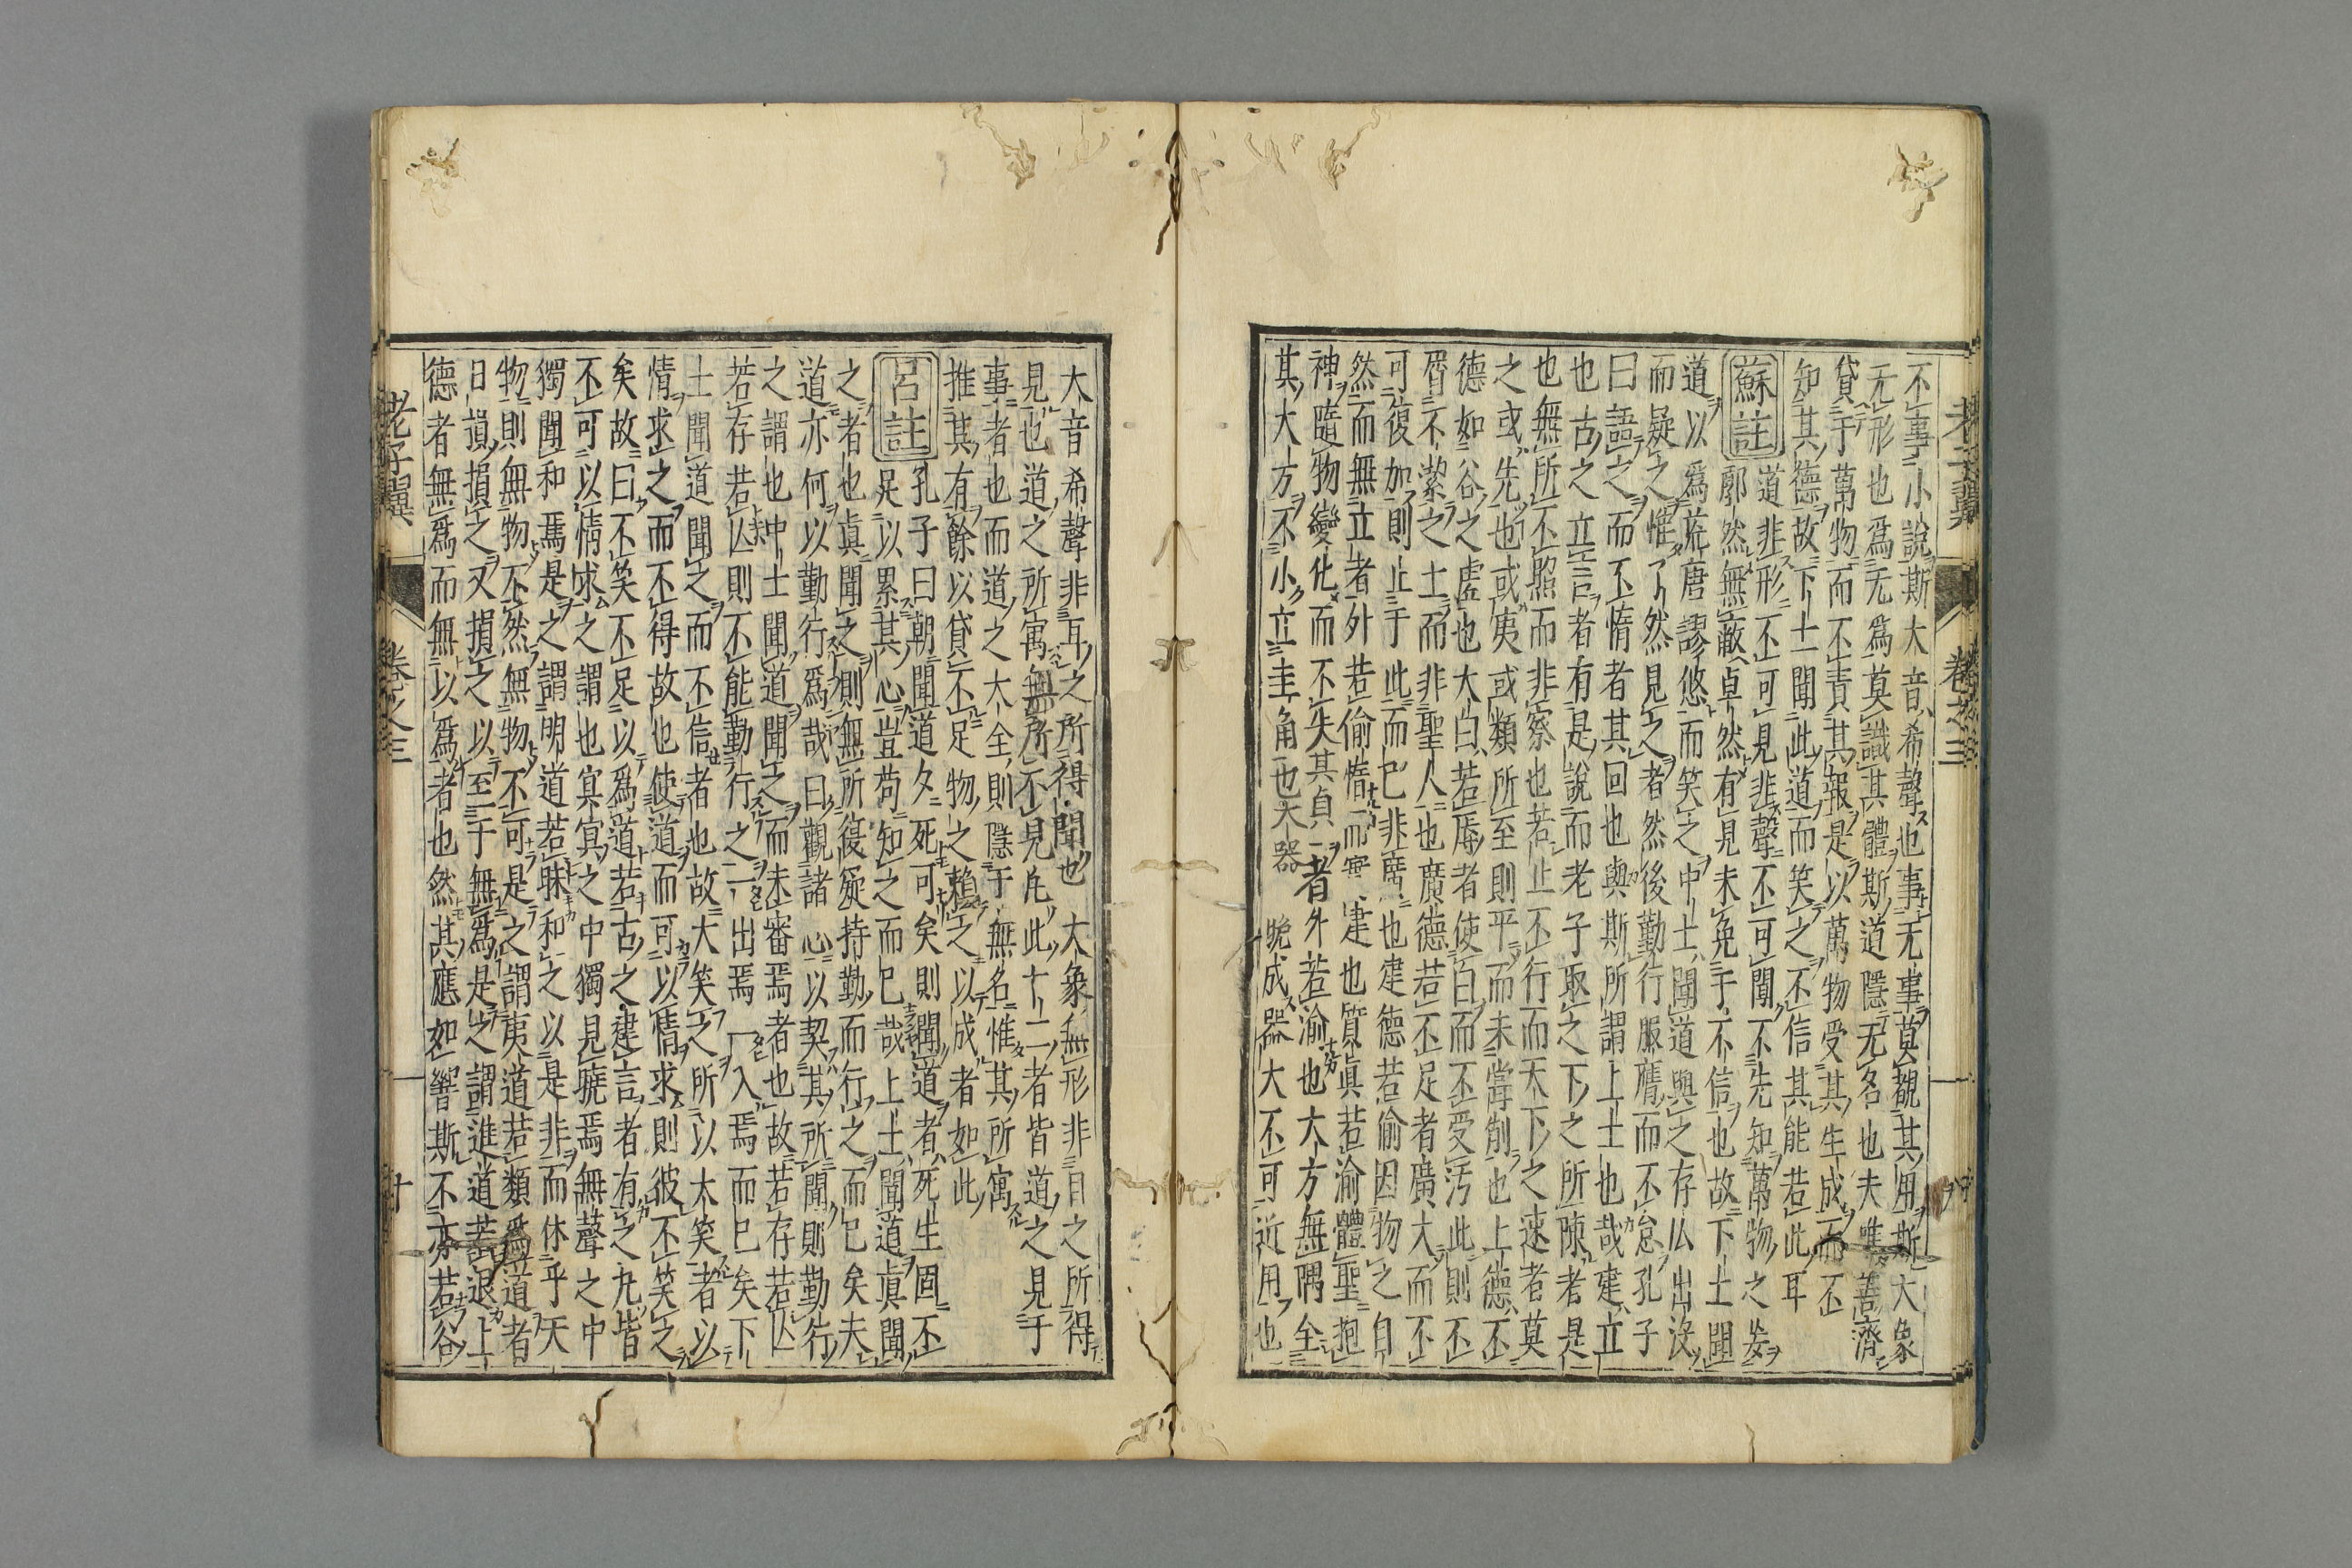 不事小說斯大音希聲也事无事莫覩其用斯大象
无形也爲无爲莫識其體斯道隱无名也夫唯善濟
貸于萬物而不責其報是以萬物受其生成而不
知其德故下士聞此道而笑之不信其能若此耳
蘇註
道非形不可見非聲不可聞不先知萬物之妄
廓然無蔽卓然有見未免于不信也故下士聞
道以爲荒唐謬悠而笑之中士聞道與之存亾出沒
而疑之惟了然見之者然後勤行服膺而不怠孔子
曰語之而不惰者其回也與斯所謂上士也哉建立
也古之立言者有是說而老子取之下之所陳者是
也無所不照而非察也若止不行而天下之速者莫
之或先也或夷或類所至則平而未嘗削也上德不
德如谷之虛也大白若辱者使白而不受汚此則不
屑不潔之士而非聖人也廣德若不足者廣大而不
可復加則止于此而已非廣也建德若偷因物之自
然而無立者外若偷惰而實建也質眞若渝體聖抱
神隨物變化而不失其貞者外若渝也大方無隅全
其大方不小立圭角也大器晚成器大不可近用也
大音希聲非耳之所得聞也大象無形非目之所得
見也道之所寓無所不見凡此十二者皆道之見于
事者也而道之大全則隱于無名惟其所寓
推其有餘以貸不足物之賴之以成者如此
呂註
孔子曰朝聞道夕死可矣則聞道者死生固不
足以累其心豈苟知之而已哉上士聞道眞聞
之者也眞聞之則無所復疑持勤而行之而已矣夫
道亦何以勤行爲哉曰觀諸心以契其所聞則勤行
之謂也中士聞道聞之而未審焉者也故若存若亾
若存若亾則不能勤行之一出焉一入焉而已矣下
士聞道聞之而不信者也故大笑之所以大笑者以
情求之而不得故也使道而可以情求則彼不笑之
矣故曰不笑不足以爲道若古之建言者有之凡皆
不可以情求之謂也冥冥之中獨見曉焉無聲之中
獨聞和焉是之謂明道若昧和之以是非而休乎天
物則無物不然無物不可是之謂夷道若類爲道者
日損損之又損之以至于無爲是之謂進道若退上
德者無爲而無以爲者也然其應如響斯不亦若谷
老子翼
卷之三
十